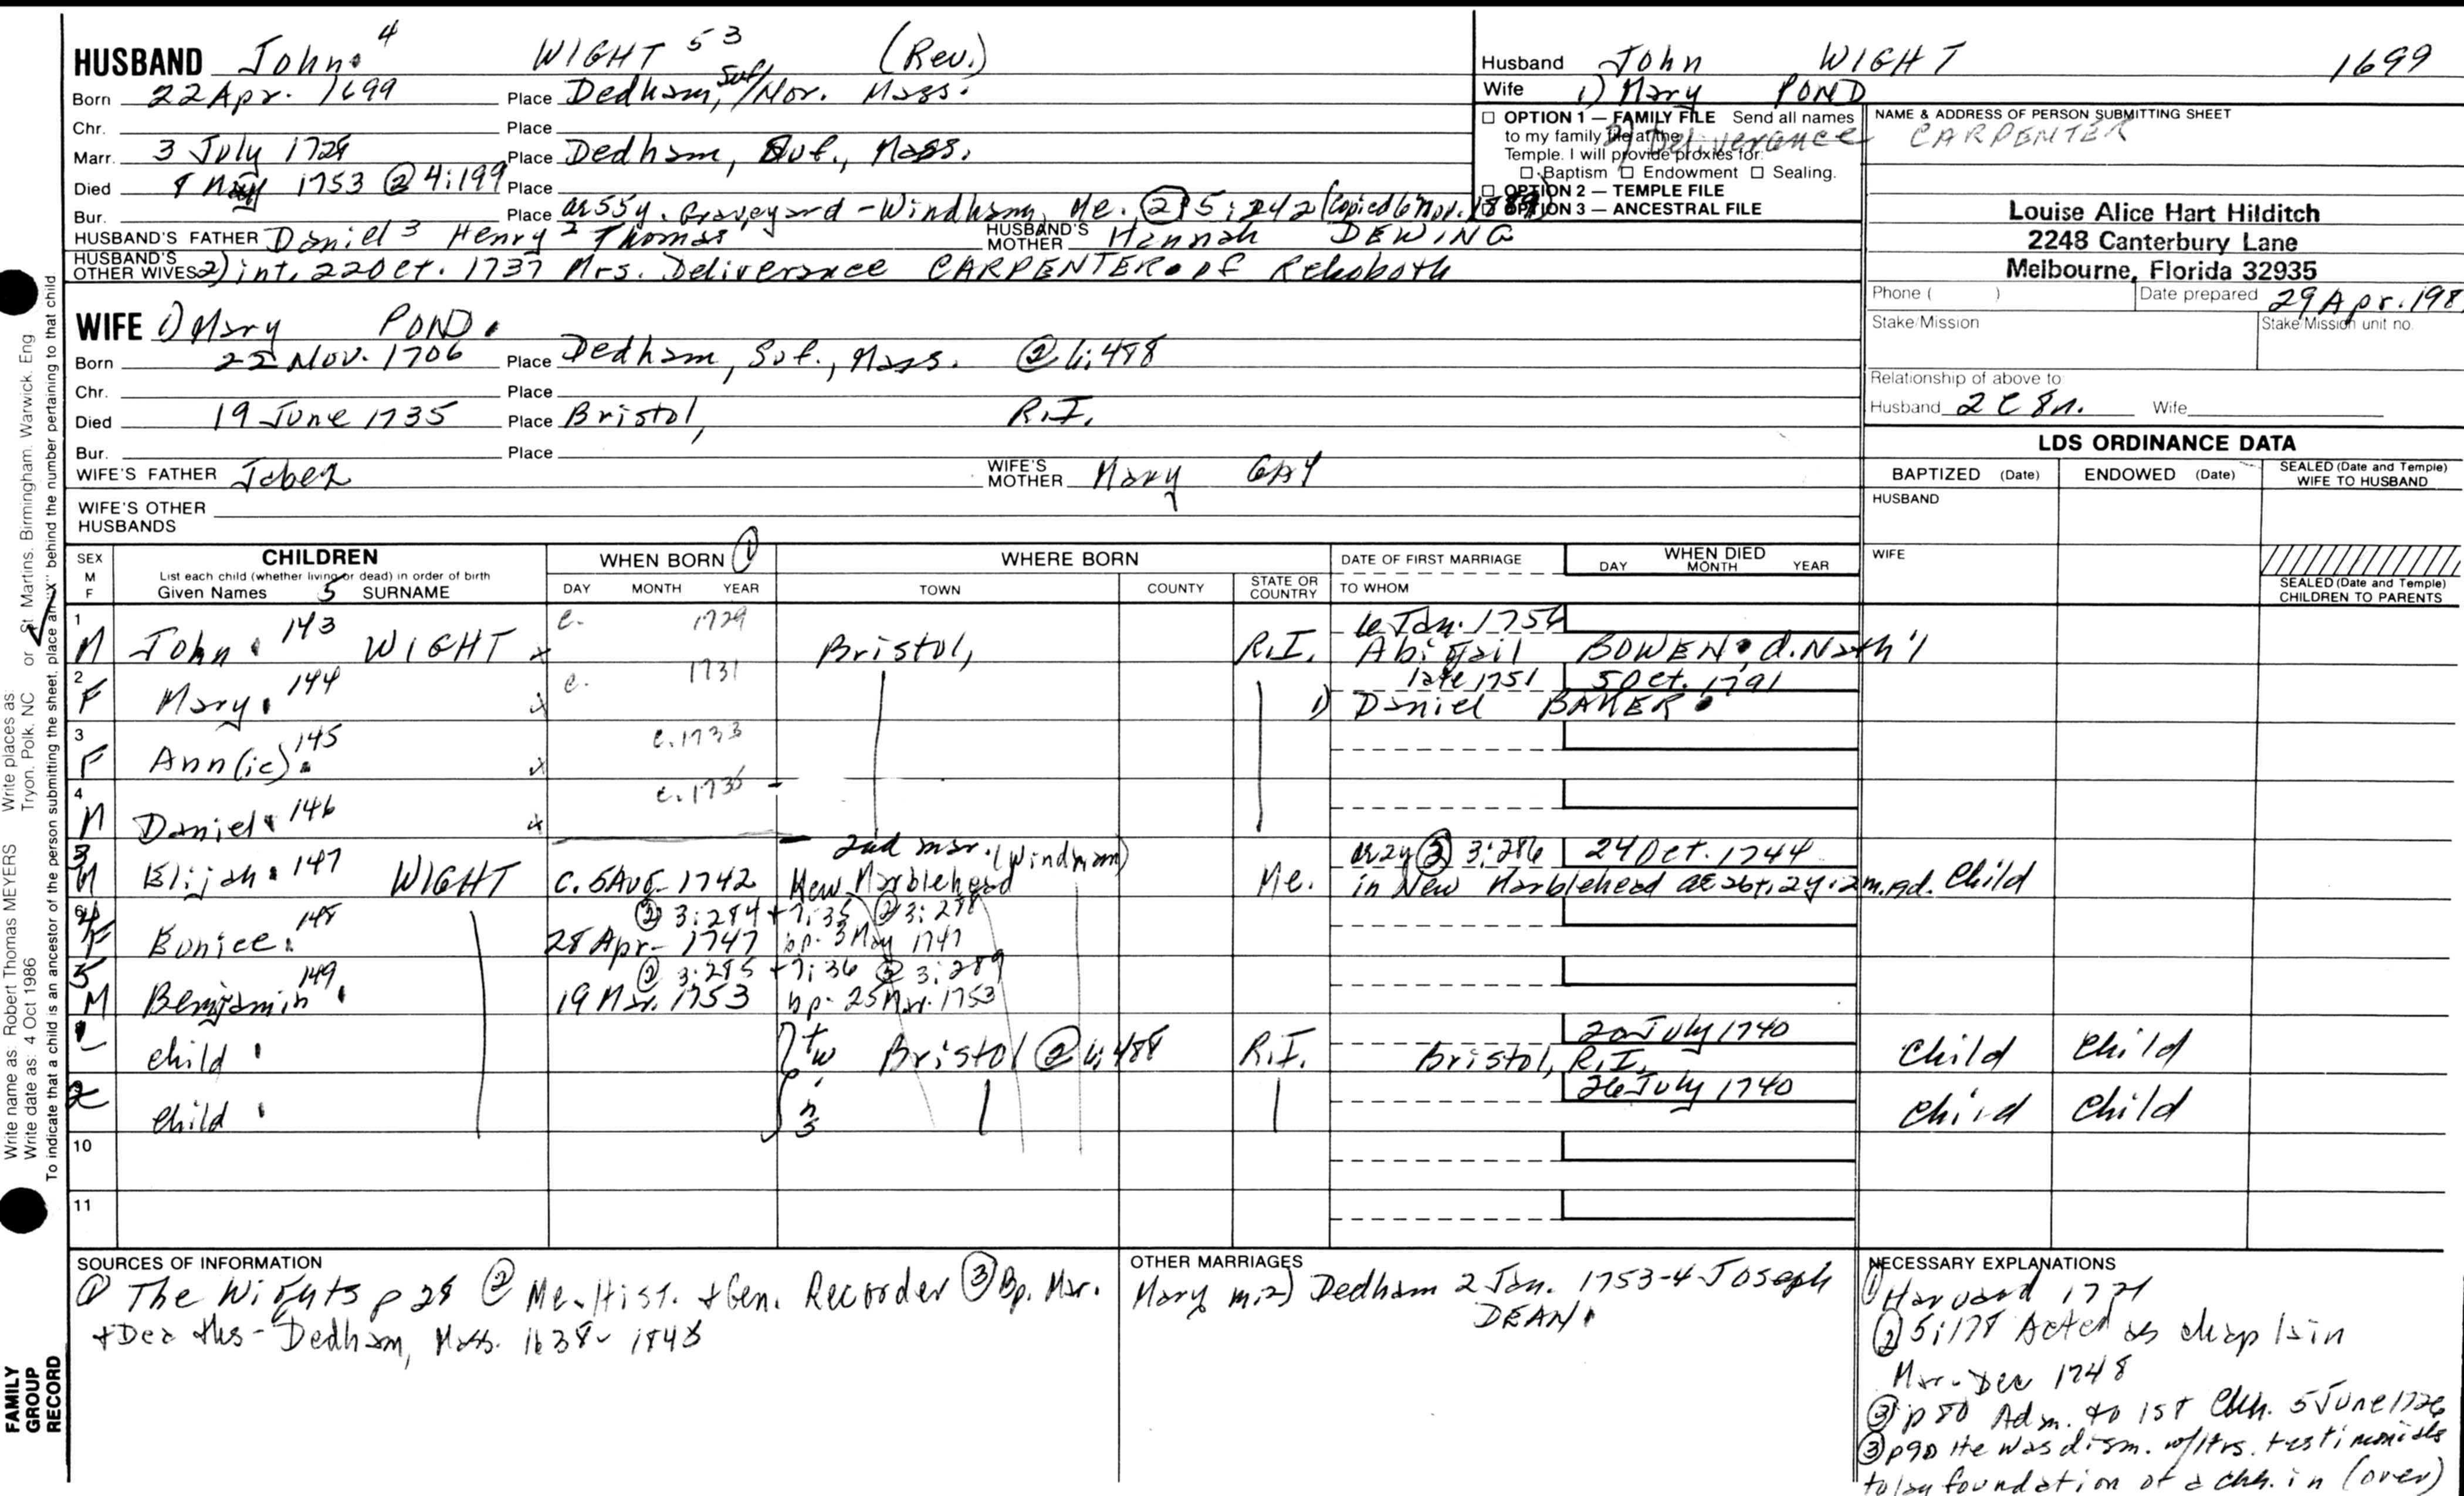 HUSBAND John 4 WIGHT 53 (Rev.)
Born 22 Apr. 1699 Place Dedham, Suf/Nor. Mass.
Chr. Place
Marr. 3 July 1728 Place Dedham, Suf., Mass.
Died 8 May 1753 @ 4:199 Place
Bur. Place ae 55y. Graveyard - Windham, Me. (2) 5:242 (Copied 6 Nov.
HUSBAND'S FATHER Daniel 3 Henry 2 Thomas 1 HUSBAND'S MOTHER Hannah DEWING
HUSBAND'S OTHER WIVES 2) int. 22 Oct. 1737 Mrs. Deliverance CARPENTER of Rehoboth
WIFE 1) Mary POND
Born 25 Nov. 1706 Place Dedham, Suf., Mass. (2) 6:488
Chr. Place
Died 19 June 1735 Place Bristol, R.I.
Bur. Place
WIFE'S FATHER Jabez WIFE'S MOTHER Mary GAY
WIFE'S OTHER HUSBANDS
Husband John WIGHT 1699
Wife 1) Mary POND
2) Deliverance CARPENTER
☐ OPTION 1 — FAMILY FILE Send all names
to my family file at the
Temple. I will provide proxies for:
☐ Baptism ☐ Endowment ☐ Sealing.
☐ OPTION 2 — TEMPLE FILE
☐ OPTION 3 — ANCESTRAL FILE
NAME & ADDRESS OF PERSON SUBMITTING SHEET
Louise Alice Hart Hilditch
2248 Canterbury Lane
Melbourne, Florida 32935
Phone ( ) Date prepared 29 Apr. 198
Stake/Mission Stake/Mission unit no.
Relationship of above to
Husband 2 C 8 r. Wife
LDS ORDINANCE DATA
BAPTIZED (Date) ENDOWED (Date) SEALED (Date and Temple) WIFE TO HUSBAND
HUSBAND
WIFE
SEALED (Date and Temple) CHILDREN TO PARENTS
SEX M F CHILDREN WHEN BORN (1) WHERE BORN DATE OF FIRST MARRIAGE WHEN DIED
List each child (whether living or dead) in order of birth
Given Names 5 SURNAME DAY MONTH YEAR TOWN COUNTY STATE OR COUNTRY TO WHOM DAY MONTH YEAR
1 M John 143 WIGHT x c. 1729 Bristol, R.I. 6 Jan. 1754 Abigail BOWEN d. Nath'l
2 F Mary 144 x c. 1731 late 1751 5 Oct. 1791
1) Daniel BAKER
3 F Ann(ie) 145 x c. 1733
4 M Daniel 146 x c. 1735
2nd mar. (Windham)
3 M Elijah 147 WIGHT c. 5 Aug. 1742 New Marblehead Me. ae 2y (2) 3:286 24 Oct. 1744
in New Marblehead ae abt. 2y. 2m. Child
4 F Eunice 148 (2) 3:284 + 7:35 (2) 3:288
28 Apr. 1747 bp. 3 May 1747
5 M Benjamin 149 (2) 3:285 + 7:36 (2) 3:289
19 Mar. 1753 bp. 25 Mar. 1753
1 child tw Bristol (2) 6:488 R.I. 20 July 1740 Bristol, R.I. Child Child
2 child 26 July 1740 Child Child
10
11
SOURCES OF INFORMATION
(1) The Wights p 28 (2) Me. Hist. + Gen. Recorder (3) Bp. Mar.
+ Deaths - Dedham, Mass. 1638 - 1845
OTHER MARRIAGES
Mary m. 2) Dedham 2 Jan. 1753-4 Joseph
DEAN
NECESSARY EXPLANATIONS
(1) Harvard 1721
(2) 5:178 Acted as chaplain
Mar. - Dec 1748
(3) p 80 Adm. to 1st Chh. 5 June 1726
(3) p 90 He was dism. w/ltrs. testimonials
to lay foundation of a chh. in (over)
Write name as: Robert Thomas MEYERS Write places as Tryon, Polk, NC or St Martins, Birmingham, Warwick, Eng
Write date as: 4 Oct 1986
To indicate that a child is an ancestor of the person submitting the sheet, place an "X" behind the number pertaining to that child
FAMILY
GROUP
RECORD